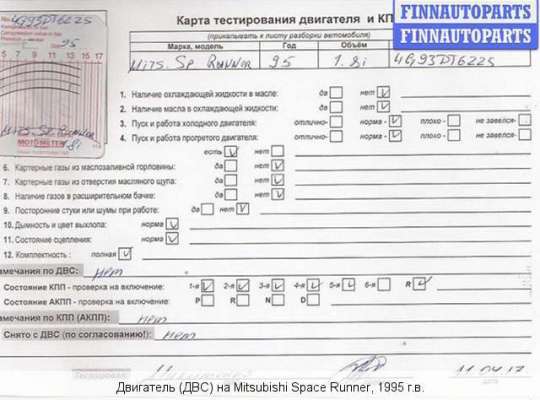 4G93DT6225
95
5 6 7 8 9 10 11 12 13 14 15 16 17
Mits. Sp. Runner
MOTOMETER
1.8i
FINNAUTOPARTS
FINNAUTOPARTS
Карта тестирования двигателя и КП
(прикалывать к листу разборки автомобиля)
Марка, модель Год Объём
Mits. Sp. Runner 95 1.8i 4G93DT6225
1. Наличие охлаждающей жидкости в масле: да нет
2. Наличие масла в охлаждающей жидкости: да нет
3. Пуск и работа холодного двигателя: отлично- норма - плохо- не завелся-
4. Пуск и работа прогретого двигателя: отлично- норма - плохо - не завелся-
есть нет
6. Картерные газы из маслозаливной горловины: да нет
7. Картерные газы из отверстия масляного щупа: да нет
8. Наличие газов в расширительном бачке: да нет
9. Посторонние стуки или шумы при работе: да нет
10. Дымность и цвет выхлопа: норма
11. Состояние сцепления: норма
12. Комплектность : полная
мечания по ДВС: нет
Состояние КПП - проверка на включение: 1-я 2-я 3-я 4-я 5-я 6-я R
Состояние АКПП - проверка на включение: P R N D
мечания по КПП (АКПП): нет
Снято с ДВС (по согласованию!): нет
Тестировал 11.04.17
дата
Двигатель (ДВС) на Mitsubishi Space Runner, 1995 г.в.